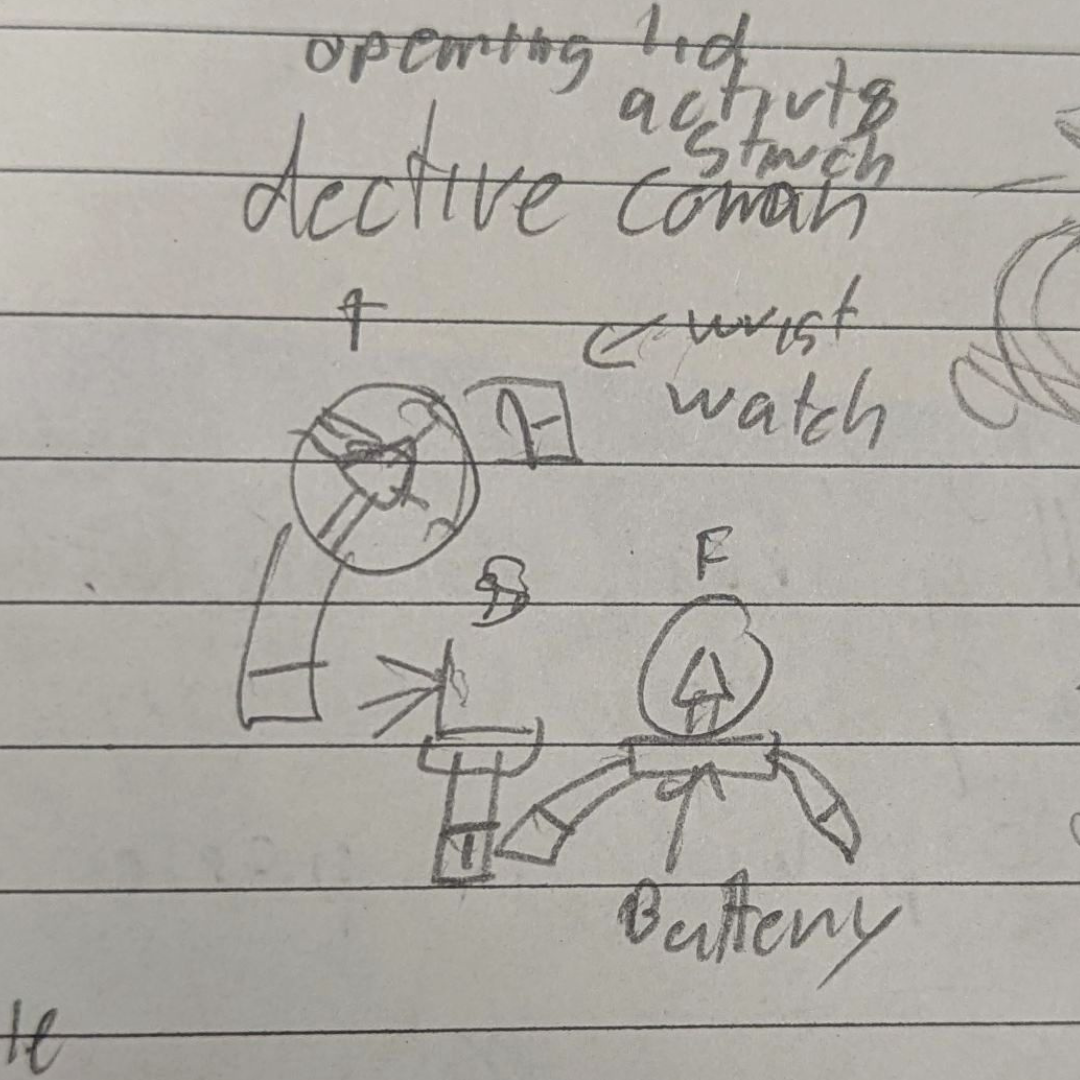 opening lid
activts
Stwch
dective conan
T
← wrist
watch
S
F
Battery
le